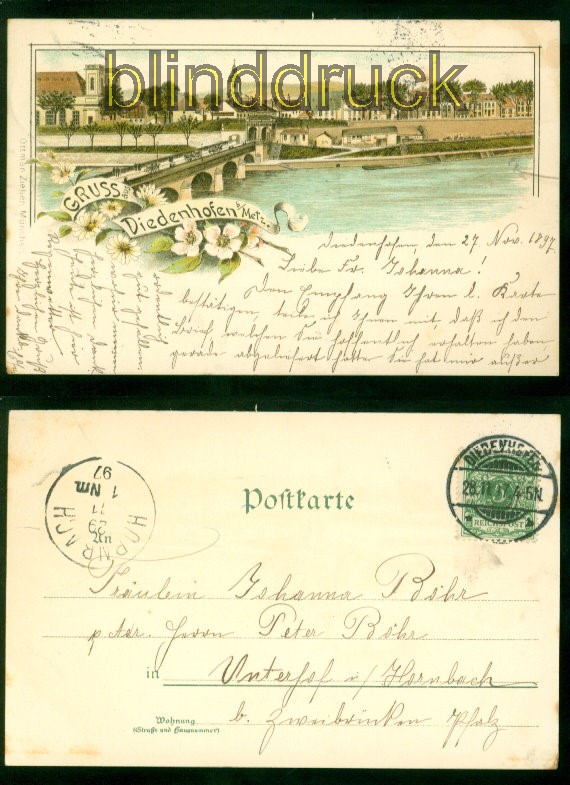 blinddruck
Ottmar Zieher, München
GRUSS aus
Diedenhofen b/Metz.
Diedenhofen, den 27. Nov. 1897
Liebe Fr. Johanna!
Den Empfang Ihrer l. Karte
bestätigen, teile ich Ihnen mit daß ich den
Brief, welchen Sie hoffentlich erhalten haben
gerade abgeliefert hatte. Sie hat mir außer
gut gefallen
DIEDENHOFEN
28.11.97 4-5N
REICHSPOST
HORNBACH
29
11
1 Nm
97
Postkarte
An
Fräulein Johanna Böhr
p. Adr. Herrn Peter Böhr
in Unterhof i/Hornbach
Wohnung
(Straße und Hausnummer)
b. Zweibrücken Pfalz